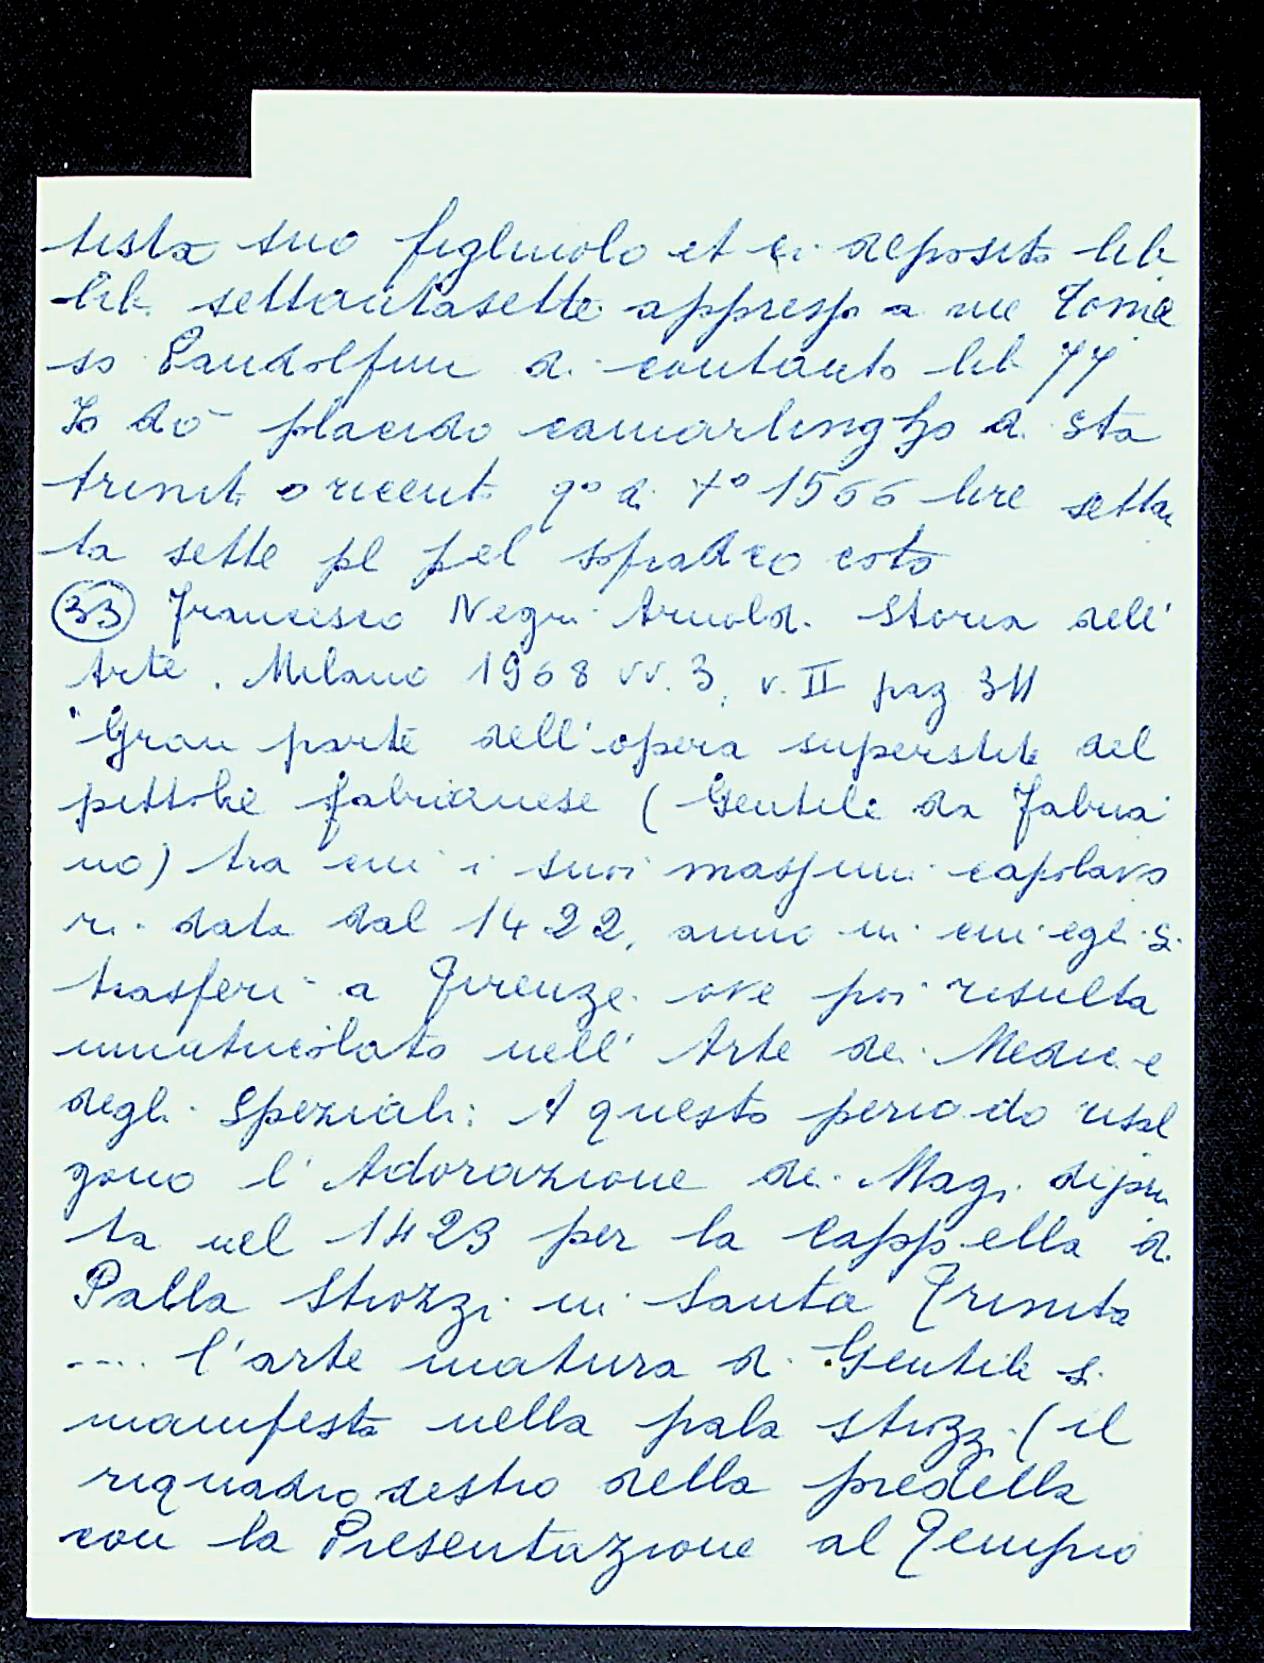 tista suo figluiolo et ci deposito lib
lib. settantasette appresso a me Toma
so Pandolfini di contanto lib 77
Io dō placido camarlingho di sta
trinit. o ricent. qº di 7º 1566 lire settan
ta sette pl pel sopradco coto
(33) Francesco Negri Arnoldi. Storia dell'
Arte. Milano 1968 vv. 3, v. II pag 311
"Gran parte dell'opera superstite del
pittore fabrianese (Gentile da Fabria
no) tra cui i suoi massimi capolavo
ri. data dal 1422, anno in cui egli si
trasferi a Firenze ove poi risulta
immatricolato nell'Arte dei Medici e
degli Speziali: A questo periodo risal
gono l'Adorazione dei Magi dipin
ta nel 1423 per la Cappella di
Palla Strozzi in Santa Trinita
.... l'arte matura di Gentile si
manifesta nella pala strozzi (il
riquadro destro della predella
con la Presentazione al Tempio